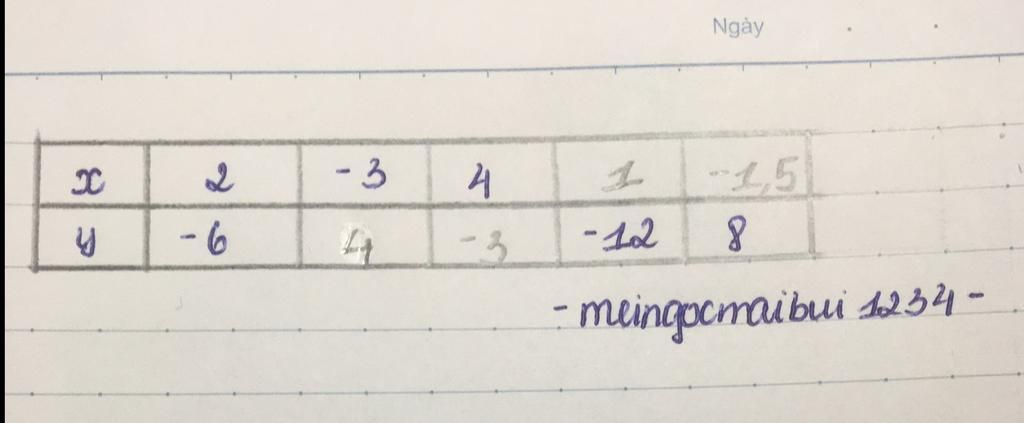 Ngày
x 2 -3 4 1 -1,5
y -6 4 -3 -12 8
- meingocmaibui 1234 -